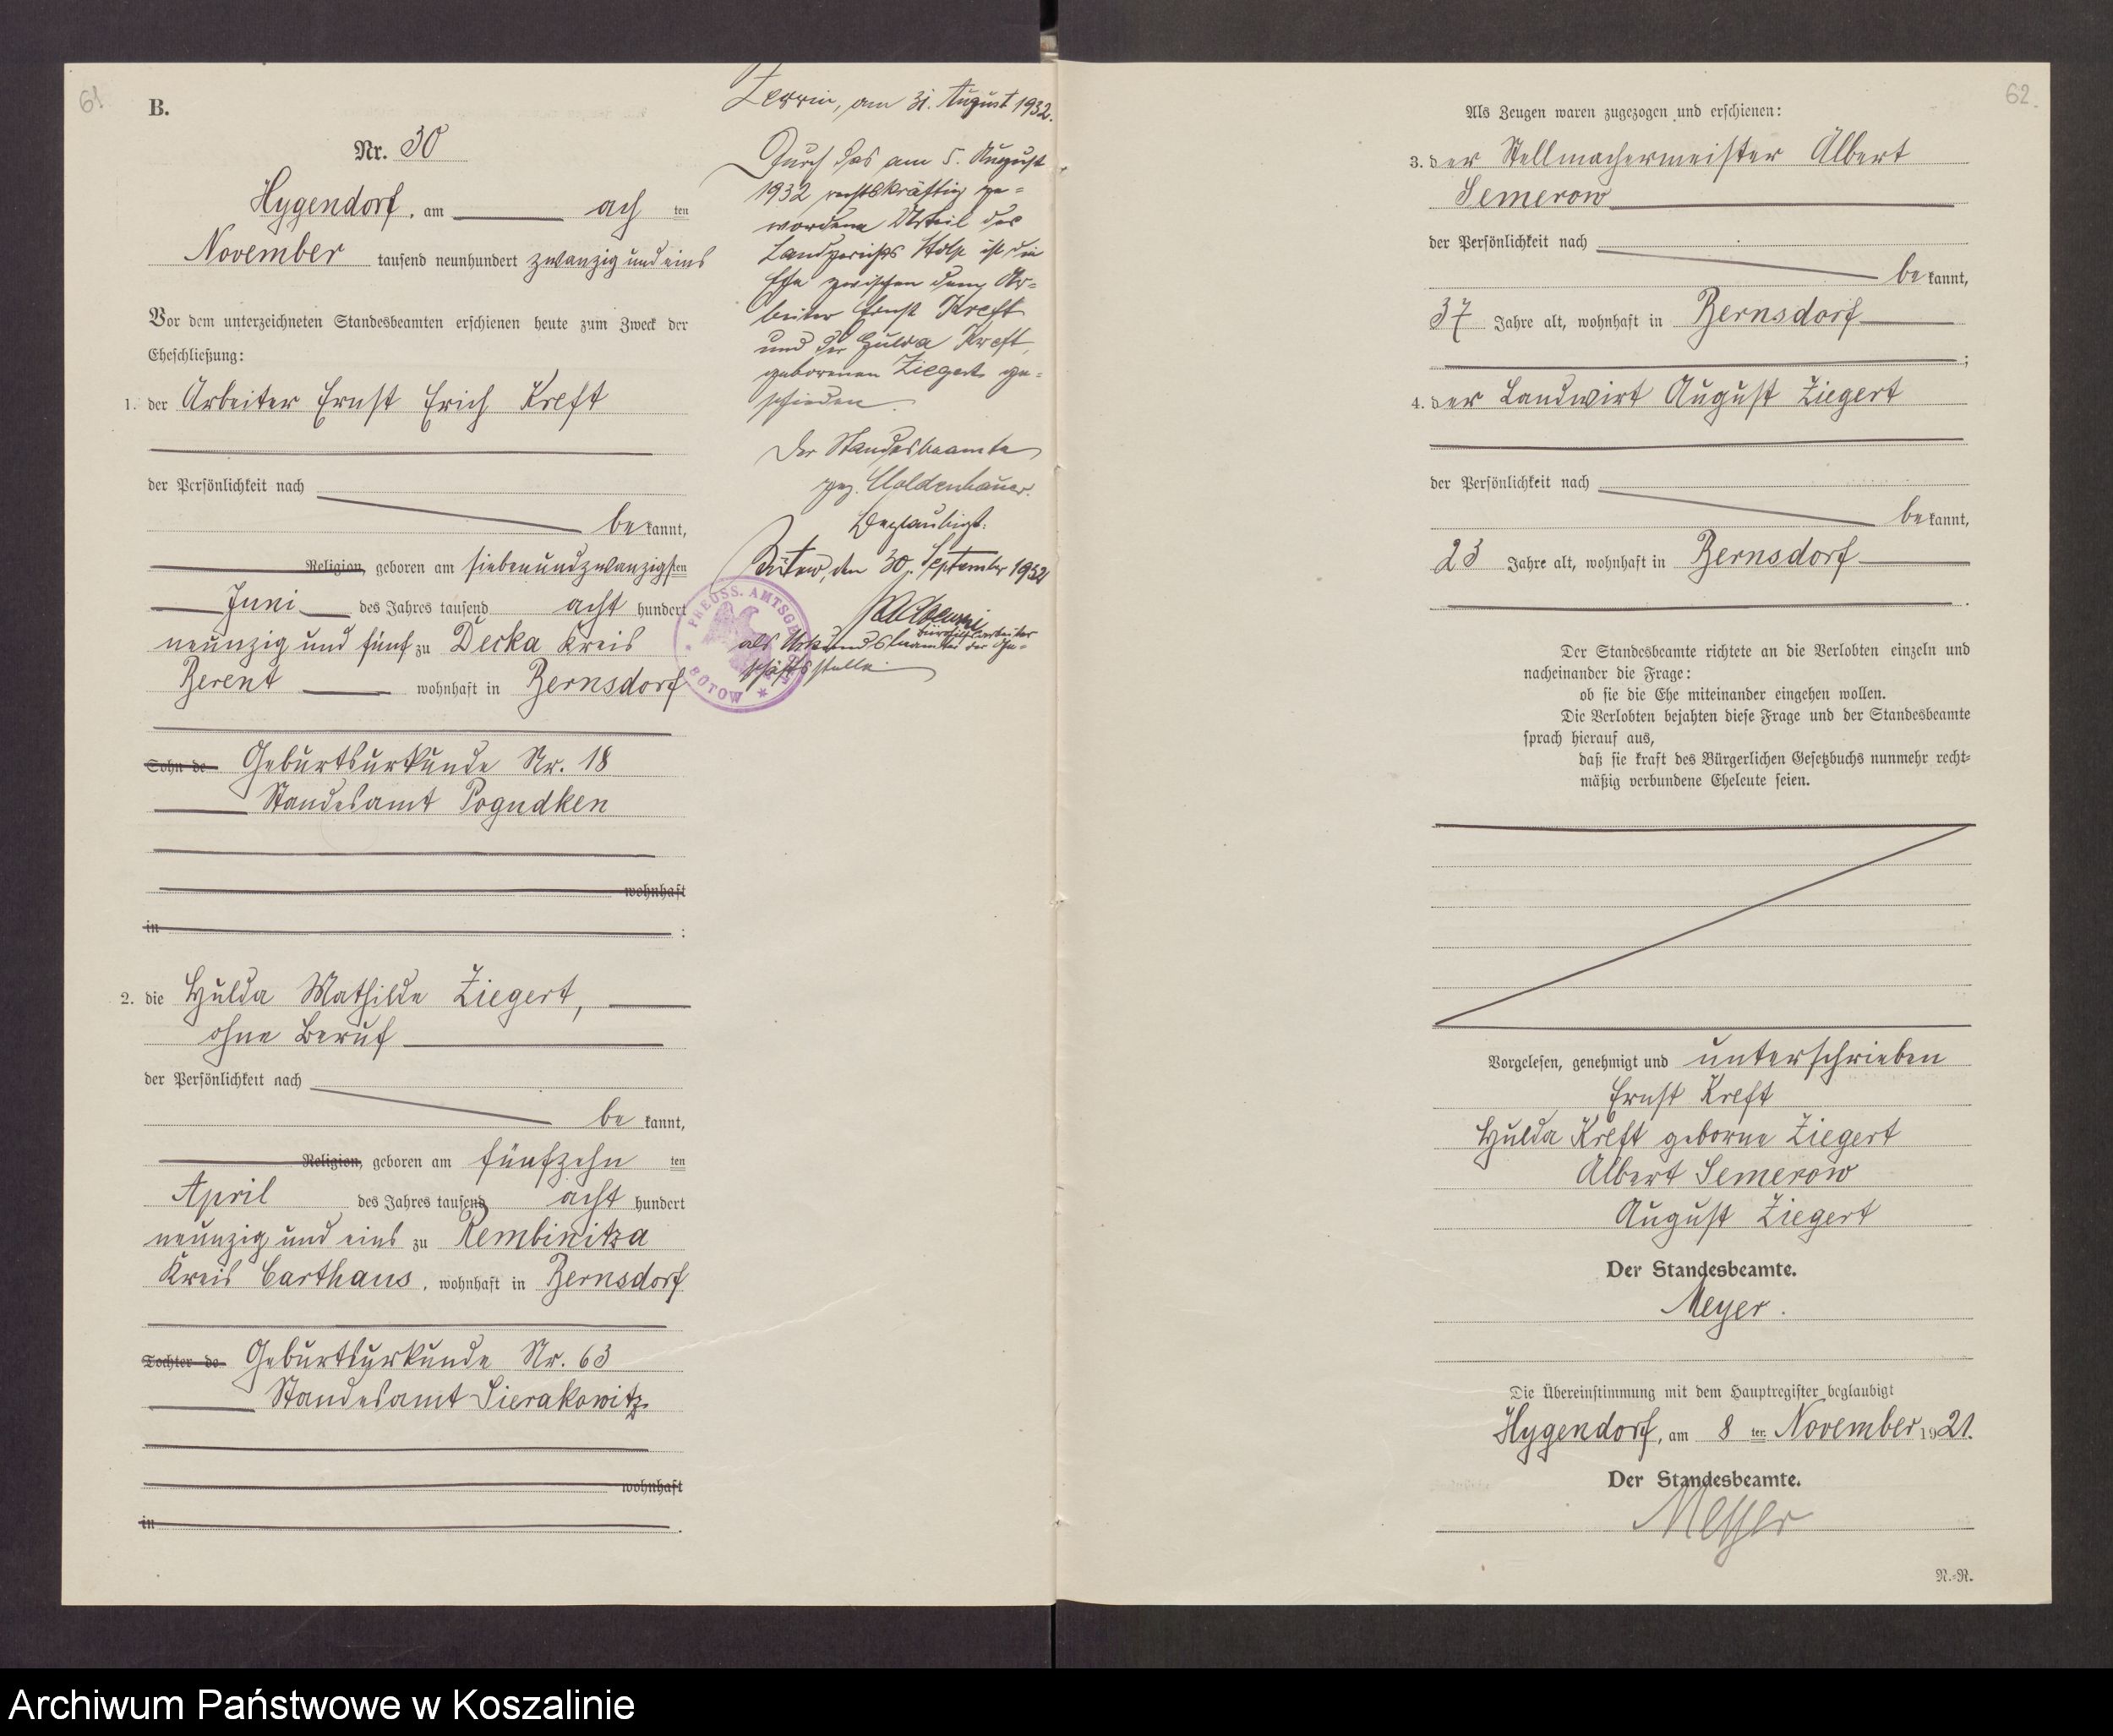 61
B.
Nr. 30
Hygendorf, am ach ten
November tausend neunhundert zwanzig und eins
Vor dem unterzeichneten Standesbeamten erschienen heute zum Zweck der
Eheschließung:
1. der Arbeiter Ernst Erich Kreft
der Persönlichkeit nach
be kannt,
Religion, geboren am siebenundzwanzigsten
Juni des Jahres tausend acht hundert
neunzig und fünf zu Decka Kreis
Berent wohnhaft in Bernsdorf
Sohn de Geburtsurkunde Nr. 18
Standesamt Pogudken
wohnhaft
in :
2. die Hulda Mathilde Ziegert,
ohne Beruf
der Persönlichkeit nach
be kannt,
Religion, geboren am fünfzehn ten
April des Jahres tausend acht hundert
neunzig und eins zu Rembinitza
Kreis Carthaus, wohnhaft in Bernsdorf
Tochter de Geburtsurkunde Nr. 63
Standesamt Sierakowitz
wohnhaft
in .
Zerrin, am 31. August 1932.
Durch das am 5. August
1932 rechtskräftig ge=
wordene Urteil des
Landgerichts Stolp ist die
Ehe zwischen dem Ar=
beiter Ernst Kreft
und der Hulda Kreft,
geborenen Ziegert ge=
schieden.
Der Standesbeamte
gez. Moldenhauer.
Beglaubigt:
Bütow, den 30. September 1932
Bürohilfsarbeiter
als Urkundsbeamter der Ge=
schäftsstelle.
PREUSS. AMTSGERICHT
BÜTOW
62.
Als Zeugen waren zugezogen und erschienen:
3. der Stellmachermeister Albert
Semerow
der Persönlichkeit nach
be kannt,
37 Jahre alt, wohnhaft in Bernsdorf
;
4. der Landwirt August Ziegert
der Persönlichkeit nach
be kannt,
23 Jahre alt, wohnhaft in Bernsdorf
.
Der Standesbeamte richtete an die Verlobten einzeln und
nacheinander die Frage:
ob sie die Ehe miteinander eingehen wollen.
Die Verlobten bejahten diese Frage und der Standesbeamte
sprach hierauf aus,
daß sie kraft des Bürgerlichen Gesetzbuchs nunmehr recht=
mäßig verbundene Eheleute seien.
Vorgelesen, genehmigt und unterschrieben
Ernst Kreft
Hulda Kreft geborne Ziegert
Albert Semerow
August Ziegert
Der Standesbeamte.
Meyer.
Die Übereinstimmung mit dem Hauptregister beglaubigt
Hygendorf, am 8 ten November 1921.
Der Standesbeamte.
Meyer
N.=R.
Archiwum Państwowe w Koszalinie